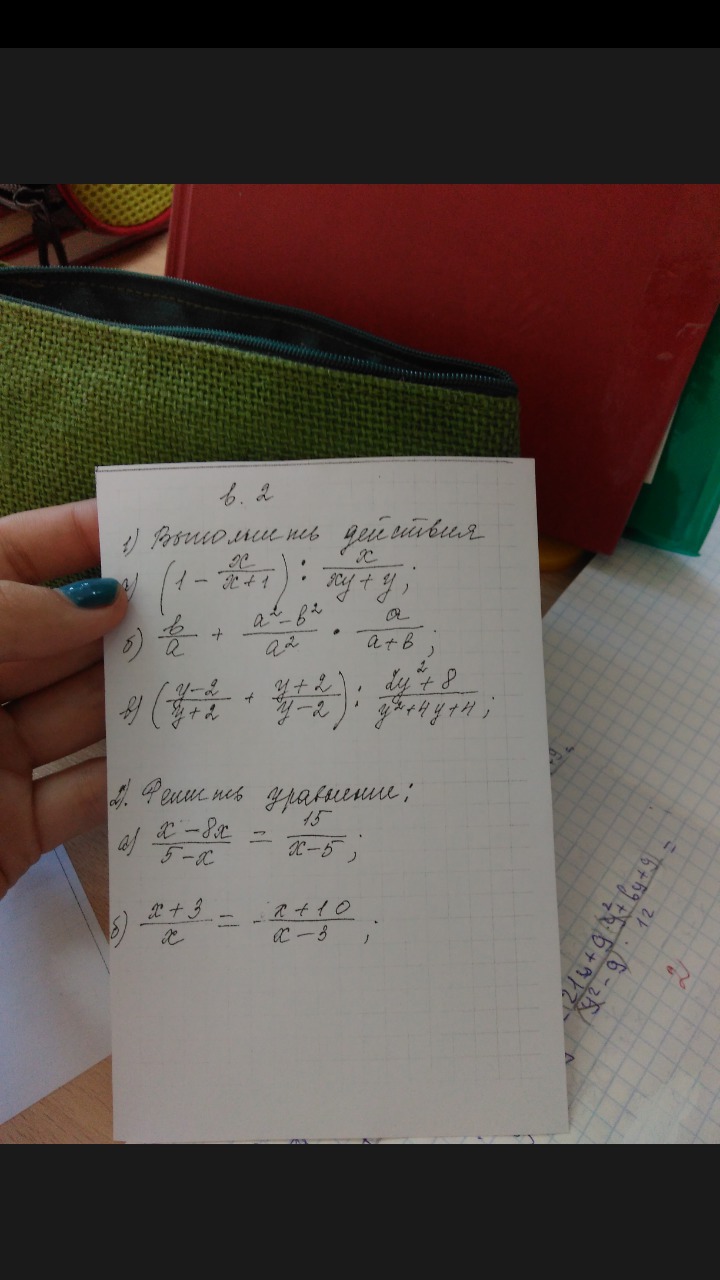 в. 2
1) Выполнить действия
а) (1 - x/(x+1)) : x/(xy+y);
б) в/a + (a²-в²)/a² • a/(a+в);
в) ((y-2)/(y+2) + (y+2)/(y-2)) : (2y²+8)/(y²+4y+4);
2). Решить уравнение:
а) (x-8x)/(5-x) = 15/(x-5);
б) (x+3)/x = -(x+10)/(x-3);
2